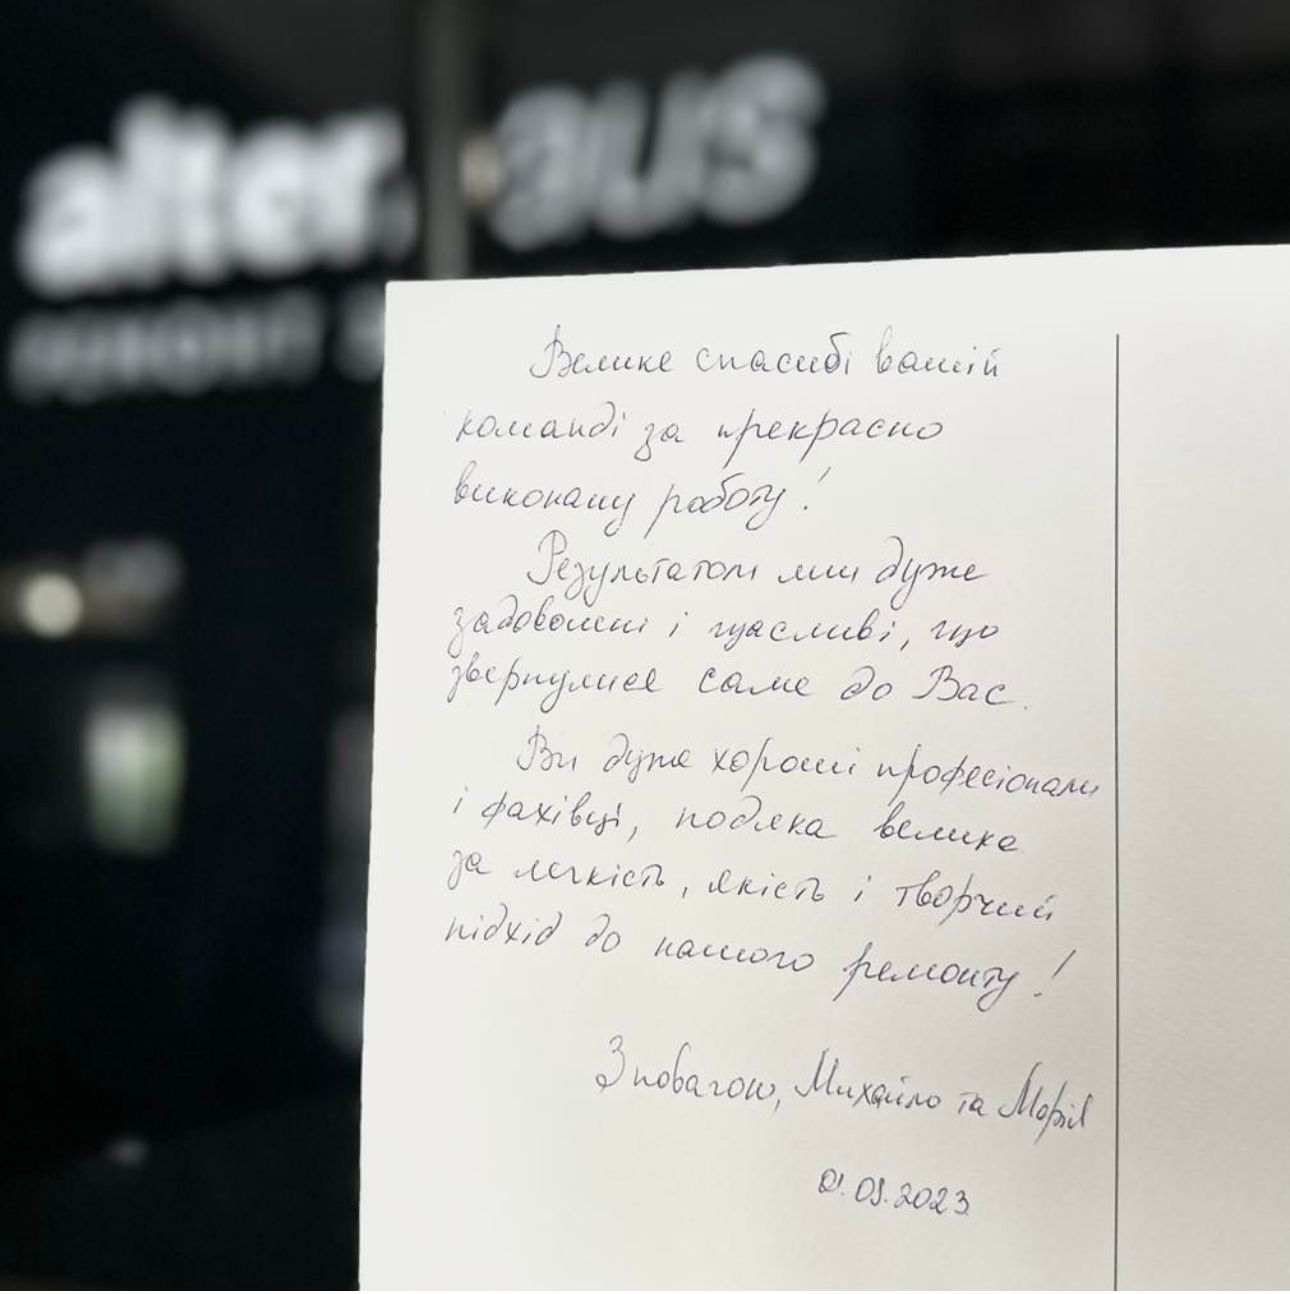 alter aus
ремонт
Велике спасибі вашій
команді за прекрасно
виконану роботу!
Результатом ми дуже
задоволені і щасливі, що
звернулися саме до Вас.
Ви дуже хороші професіонали
і фахівці, подяка велика
за легкість, якість і творчий
підхід до нашого ремонту!
З повагою, Михайло та Марія
01.09.2023